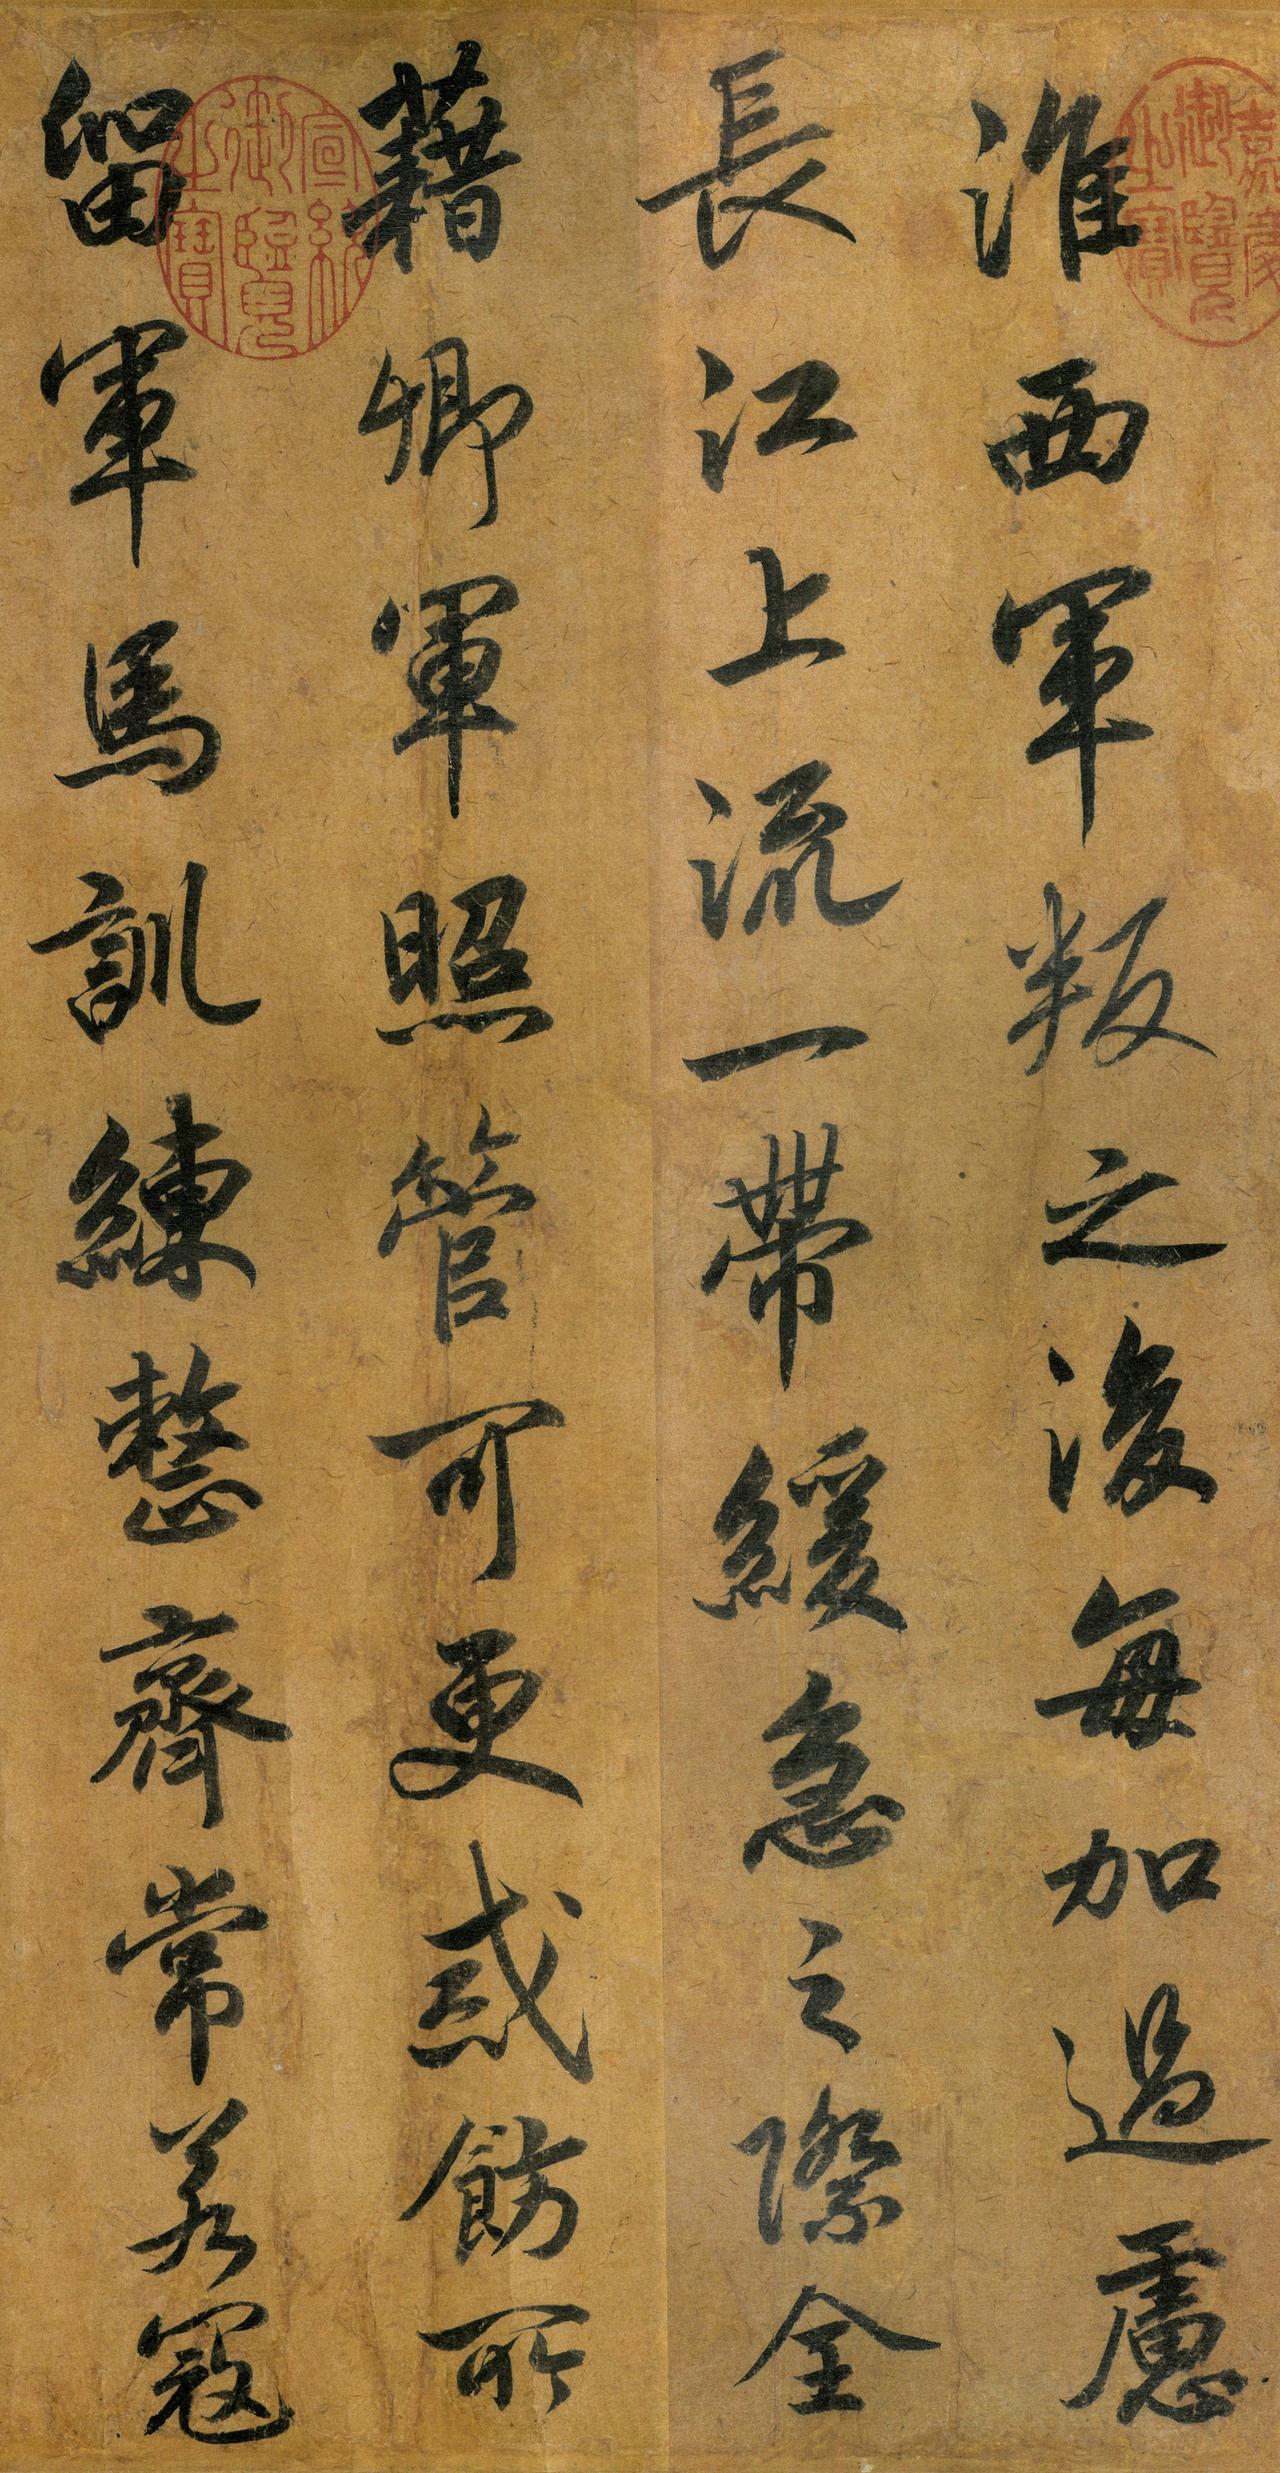 淮西軍叛之後每加過慮
長江上流一帶緩急之際全
藉卿軍照管可更戒飭所
留軍馬訓練整齊常若寇
嘉慶御覽之寶
宣統御覽之寶